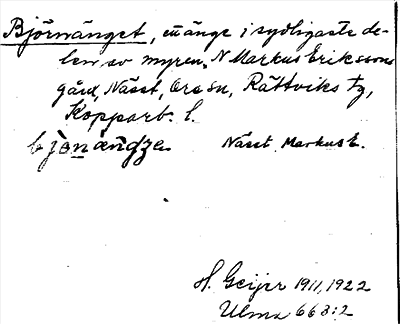 Björnänget, en änge i sydligaste de-
len av myren, N Markus Erikssons
gård, Nässt, Ore sn, Rättviks tg,
Kopparb. l.
Nässt, Markus E.
H. Geijer 1911, 1922
Ulma 663:2